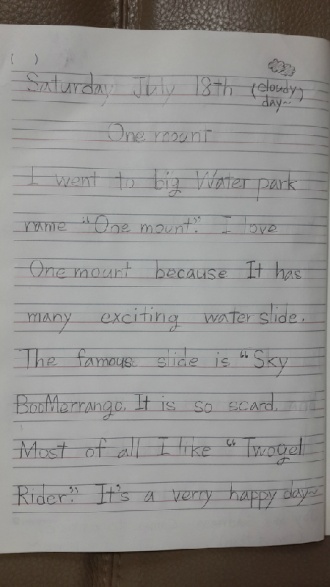 ( )
Saturday July 18th (cloudy
day~)
One mount
I went to big Water park
name "One mount". I love
One mount because It has
many exciting water slide.
The famous slide is "Sky
BooMerrango. It is so scard.
Most of all I like "Twogel
Rider". It's a verry happy day~